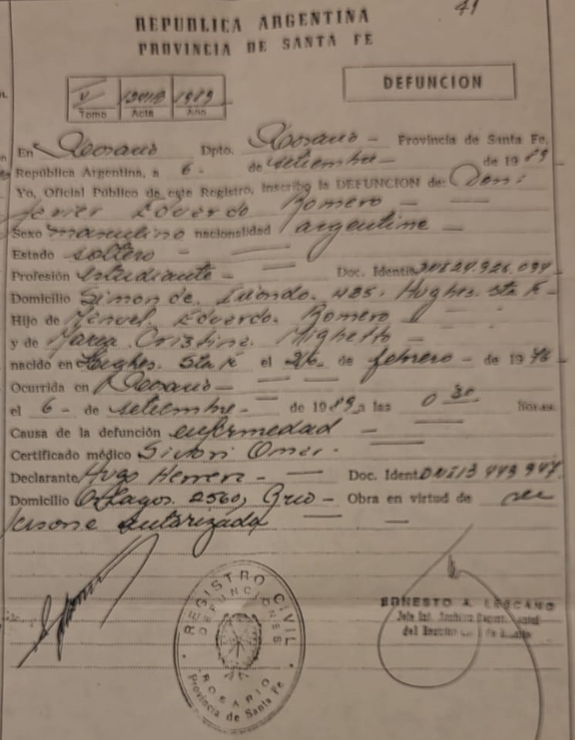 41
REPUBLICA ARGENTINA
PROVINCIA DE SANTA FE
V 1989
Tomo Acta Año
DEFUNCION
En Rosario Dpto. Rosario - Provincia de Santa Fe,
República Argentina, a 6 - de setiembre - de 1989
Yo, Oficial Público de este Registro, inscribo la DEFUNCION de: Deni
Javier Eduardo Romero
Sexo masculino nacionalidad argentina
Estado soltero
Profesión estudiante - Doc. Identid. DNI 24.926.094
Domicilio Simon de Iriondo 485. Hughes. Sta F -
Hijo de Manuel Eduardo Romero
y de Maria Cristina Mighetto
nacido en Hughes. Sta F el 26 de febrero - de 1976
Ocurrida en Rosario -
el 6 - de setiembre - de 1989 a las 0 30 Horas.
Causa de la defunción enfermedad
Certificado médico Omar -
Declarante Hugo Herrera - Doc. Ident. DNI 13.449.947
Domicilio Lagos 2560, - Obra en virtud de ser
persona autorizada
REGISTRO CIVIL
DEFUNCIONES
ROSARIO
Provincia de Santa Fe
ERNESTO A. LESCANO